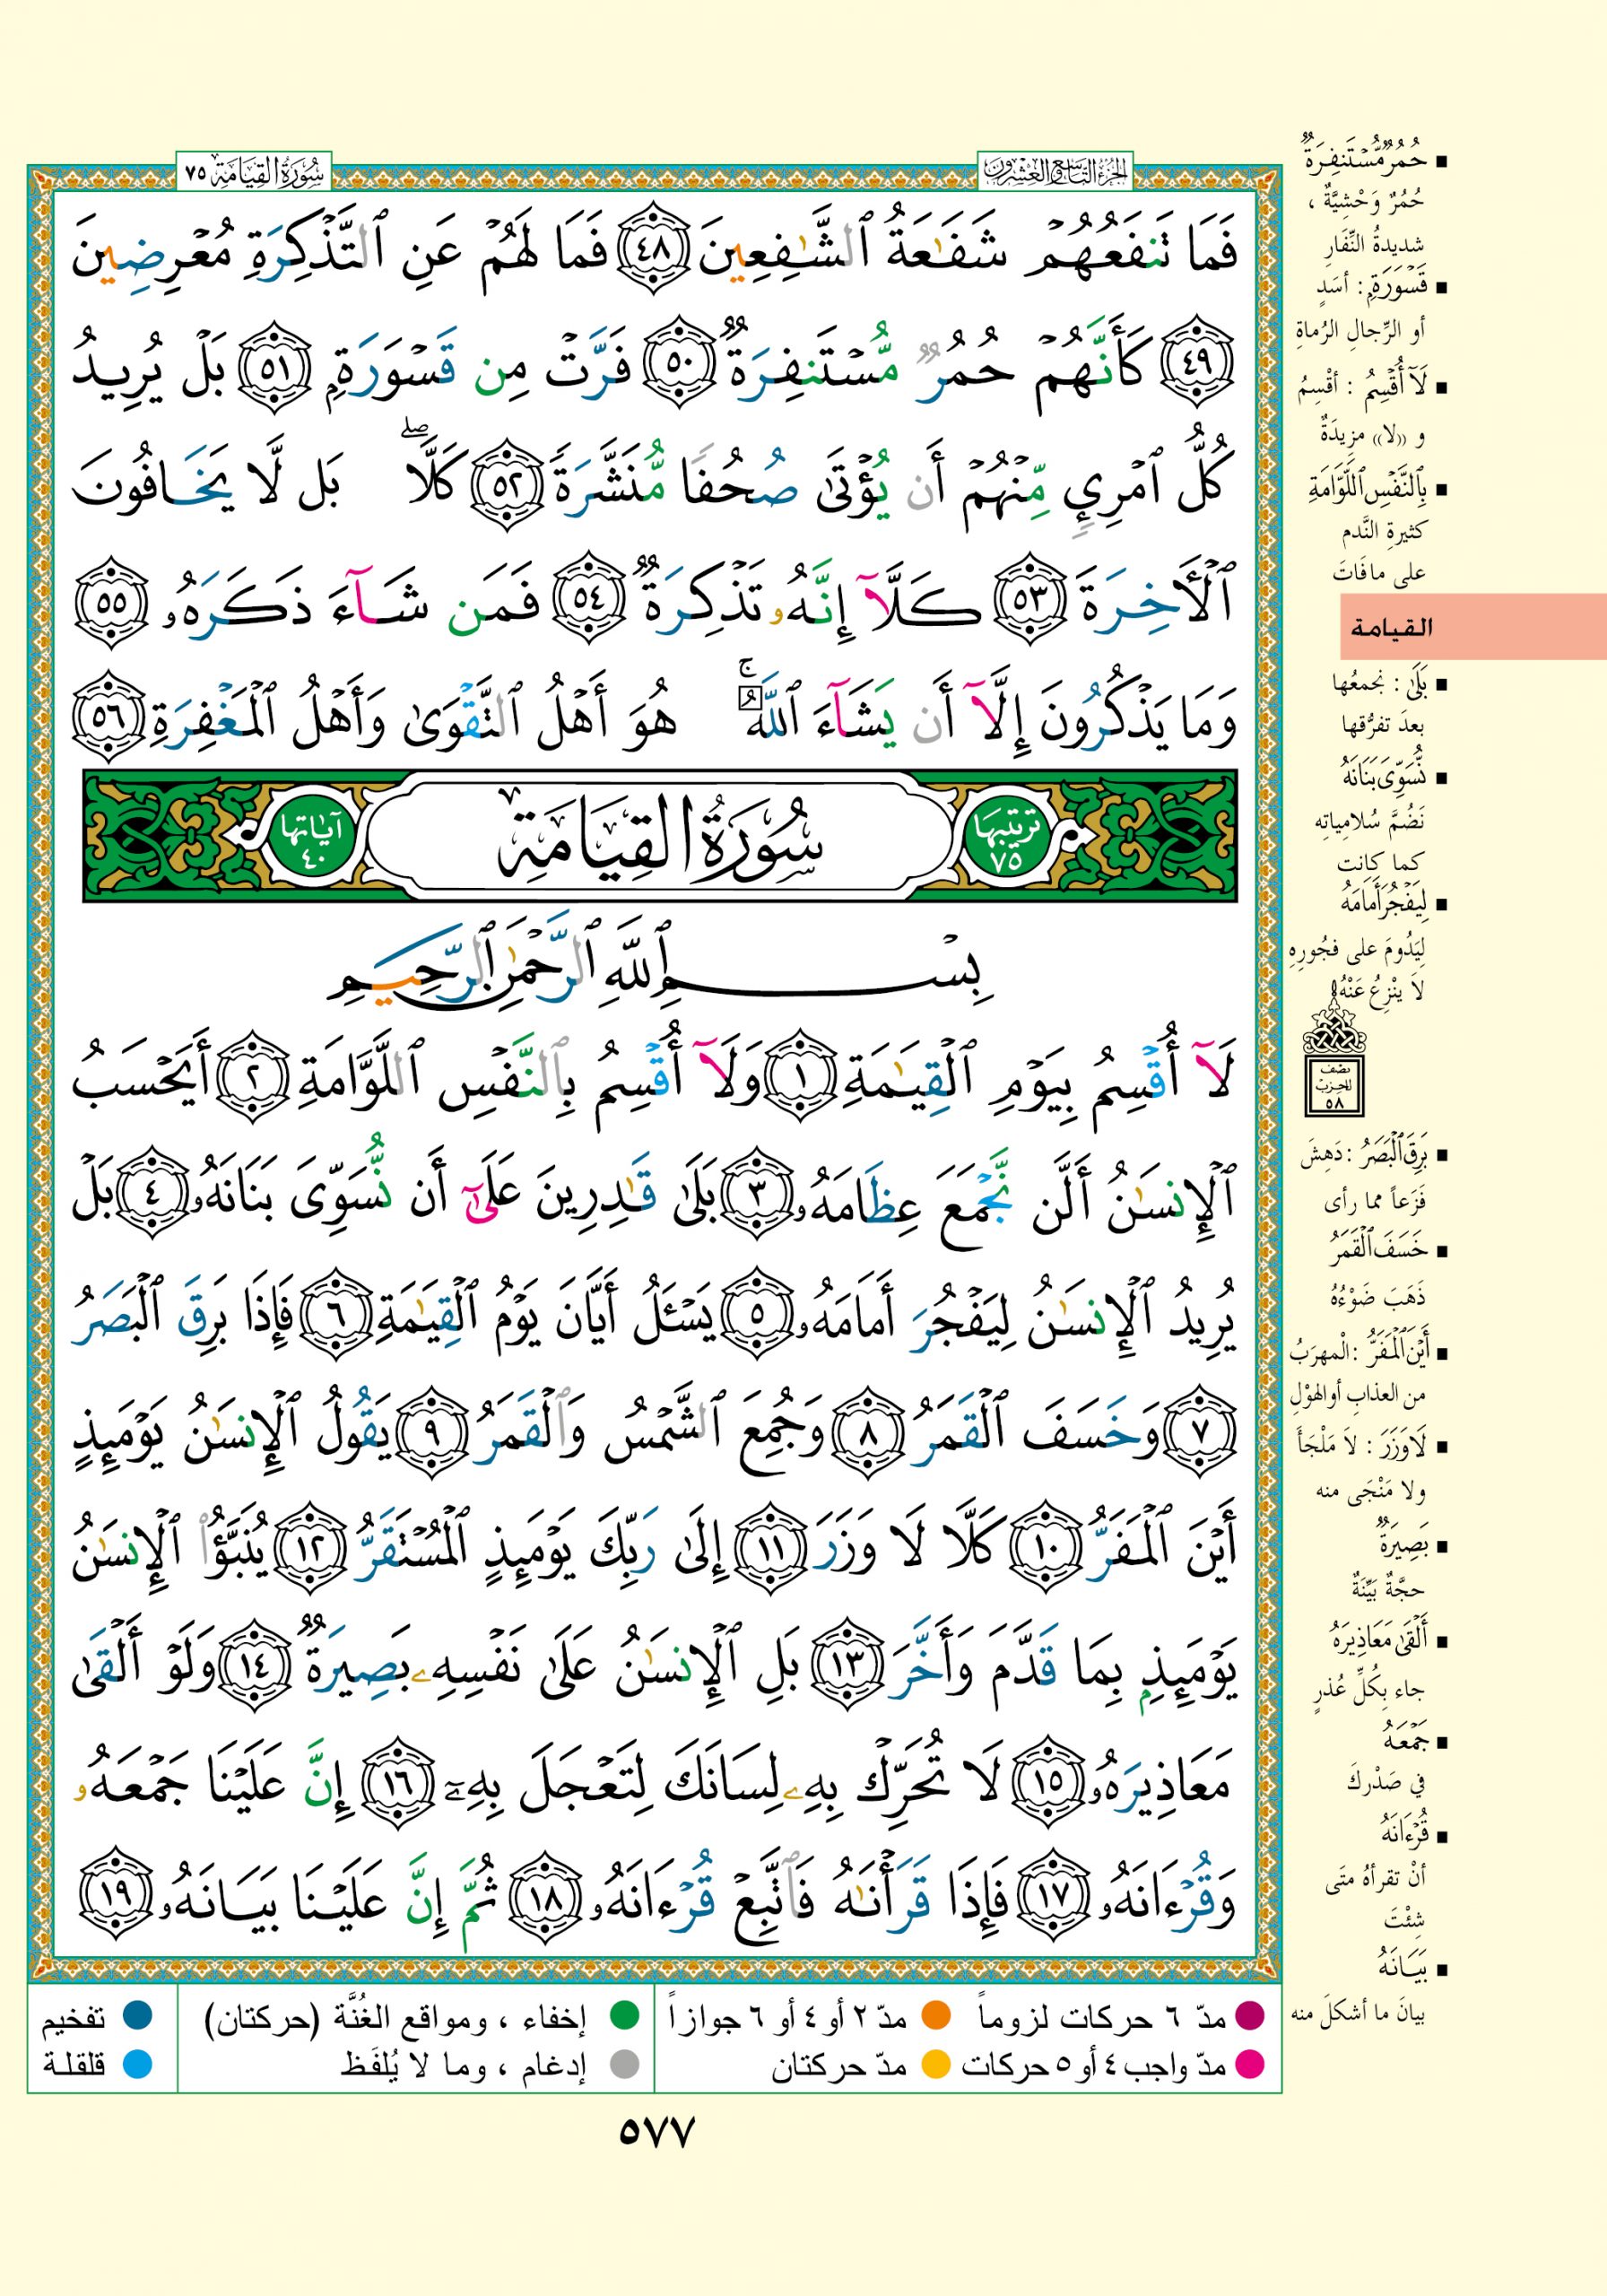 الجزء التاسع والعشرون
سورة القيامة ٧٥
فَمَا تَنفَعُهُمۡ شَفَٰعَةُ ٱلشَّٰفِعِينَ ٤٨ فَمَا لَهُمۡ عَنِ ٱلتَّذۡكِرَةِ مُعۡرِضِينَ
٤٩ كَأَنَّهُمۡ حُمُرٞ مُّسۡتَنفِرَةٞ ٥٠ فَرَّتۡ مِن قَسۡوَرَةِۭ ٥١ بَلۡ يُرِيدُ
كُلُّ ٱمۡرِيٕٖ مِّنۡهُمۡ أَن يُؤۡتَىٰ صُحُفٗا مُّنَشَّرَةٗ ٥٢ كَلَّاۖ بَل لَّا يَخَافُونَ
ٱلۡأٓخِرَةَ ٥٣ كَلَّآ إِنَّهُۥ تَذۡكِرَةٞ ٥٤ فَمَن شَآءَ ذَكَرَهُۥ ٥٥
وَمَا يَذۡكُرُونَ إِلَّآ أَن يَشَآءَ ٱللَّهُۚ هُوَ أَهۡلُ ٱلتَّقۡوَىٰ وَأَهۡلُ ٱلۡمَغۡفِرَةِ ٥٦
ترتيبها ٧٥ سُورَةُ القِيَامَةِ آياتها ٤٠
بِسۡمِ ٱللَّهِ ٱلرَّحۡمَٰنِ ٱلرَّحِيمِ
لَآ أُقۡسِمُ بِيَوۡمِ ٱلۡقِيَٰمَةِ ١ وَلَآ أُقۡسِمُ بِٱلنَّفۡسِ ٱللَّوَّامَةِ ٢ أَيَحۡسَبُ
ٱلۡإِنسَٰنُ أَلَّن نَّجۡمَعَ عِظَامَهُۥ ٣ بَلَىٰ قَٰدِرِينَ عَلَىٰٓ أَن نُّسَوِّيَ بَنَانَهُۥ ٤ بَلۡ
يُرِيدُ ٱلۡإِنسَٰنُ لِيَفۡجُرَ أَمَامَهُۥ ٥ يَسۡـَٔلُ أَيَّانَ يَوۡمُ ٱلۡقِيَٰمَةِ ٦ فَإِذَا بَرِقَ ٱلۡبَصَرُ
٧ وَخَسَفَ ٱلۡقَمَرُ ٨ وَجُمِعَ ٱلشَّمۡسُ وَٱلۡقَمَرُ ٩ يَقُولُ ٱلۡإِنسَٰنُ يَوۡمَئِذٍ
أَيۡنَ ٱلۡمَفَرُّ ١٠ كَلَّا لَا وَزَرَ ١١ إِلَىٰ رَبِّكَ يَوۡمَئِذٍ ٱلۡمُسۡتَقَرُّ ١٢ يُنَبَّؤُاْ ٱلۡإِنسَٰنُ
يَوۡمَئِذِۭ بِمَا قَدَّمَ وَأَخَّرَ ١٣ بَلِ ٱلۡإِنسَٰنُ عَلَىٰ نَفۡسِهِۦ بَصِيرَةٞ ١٤ وَلَوۡ أَلۡقَىٰ
مَعَاذِيرَهُۥ ١٥ لَا تُحَرِّكۡ بِهِۦ لِسَانَكَ لِتَعۡجَلَ بِهِۦٓ ١٦ إِنَّ عَلَيۡنَا جَمۡعَهُۥ
وَقُرۡءَانَهُۥ ١٧ فَإِذَا قَرَأۡنَٰهُ فَٱتَّبِعۡ قُرۡءَانَهُۥ ١٨ ثُمَّ إِنَّ عَلَيۡنَا بَيَانَهُۥ ١٩
حُمُرٌ مُّسْتَنفِرَةٌ
حُمُرٌ وَحْشِيَّةٌ ،
شديدةُ النِّفَارِ
قَسْوَرَةٍ : أسَدٍ
أو الرِّجالِ الرُماةِ
لَآ أُقْسِمُ : أقْسِمُ
و «لا» مزيدَةٌ
بِالنَّفْسِ اللَّوَّامَةِ
كثيرةِ النَّدم
على ما فاتَ
القيامة
بَلَى : نجمعُها
بعدَ تفرُّقها
نُّسَوِّيَ بَنَانَهُ
نَضُمَّ سُلامِياتِه
كما كانت
لِيَفْجُرَ أَمَامَهُ
لِيَدُومَ على فجُورِهِ
لاَ يَنْزِعُ عَنْهُ
نصف
الحزب
٥٨
بَرِقَ الْبَصَرُ : دَهِشَ
فَزَعاً مما رأى
خَسَفَ الْقَمَرُ
ذَهَبَ ضَوْءُهُ
أَيْنَ الْمَفَرُّ : الْمهرَبُ
من العذابِ أو الهوْلِ
لَا وَزَرَ : لاَ مَلْجَأَ
ولا مَنْجَى منه
بَصِيرَةٌ
حجَّةٌ بَيِّنَةٌ
أَلْقَى مَعَاذِيرَهُ
جاء بِكُلِّ عُذرٍ
جَمْعَهُ
في صَدْرِكَ
قُرْءَانَهُ
أنْ تقرأهُ متَى
شِئْتَ
بَيَانَهُ
بيانَ ما أشكلَ منه
مدّ ٦ حركات لزوماً مدّ ٢ أو ٤ أو ٦ جوازاً إخفاء ، ومواقع الغُنَّة (حركتان) تفخيم
مدّ واجب ٤ أو ٥ حركات مدّ حركتان إدغام ، وما لا يُلفَظ قلقلة
٥٧٧